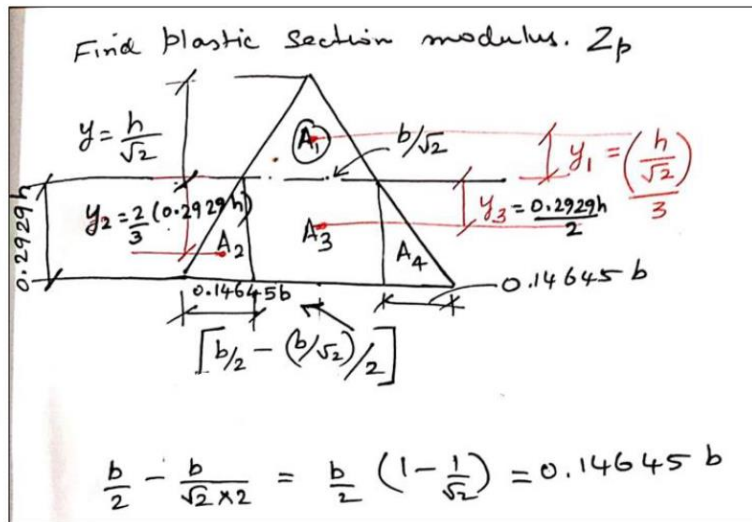 Find plastic section modulus. Zp
y = h/√2
A₁
b/√2
y₁ = (h/√2)/3
0.2929h
y₂ = 2/3 (0.2929h)
A₂
A₃
y₃ = 0.2929h/2
A₄
0.14645b
0.14645b
[b/2 - (b/√2)/2]
b/2 - b/(√2×2) = b/2 (1 - 1/√2) = 0.14645 b